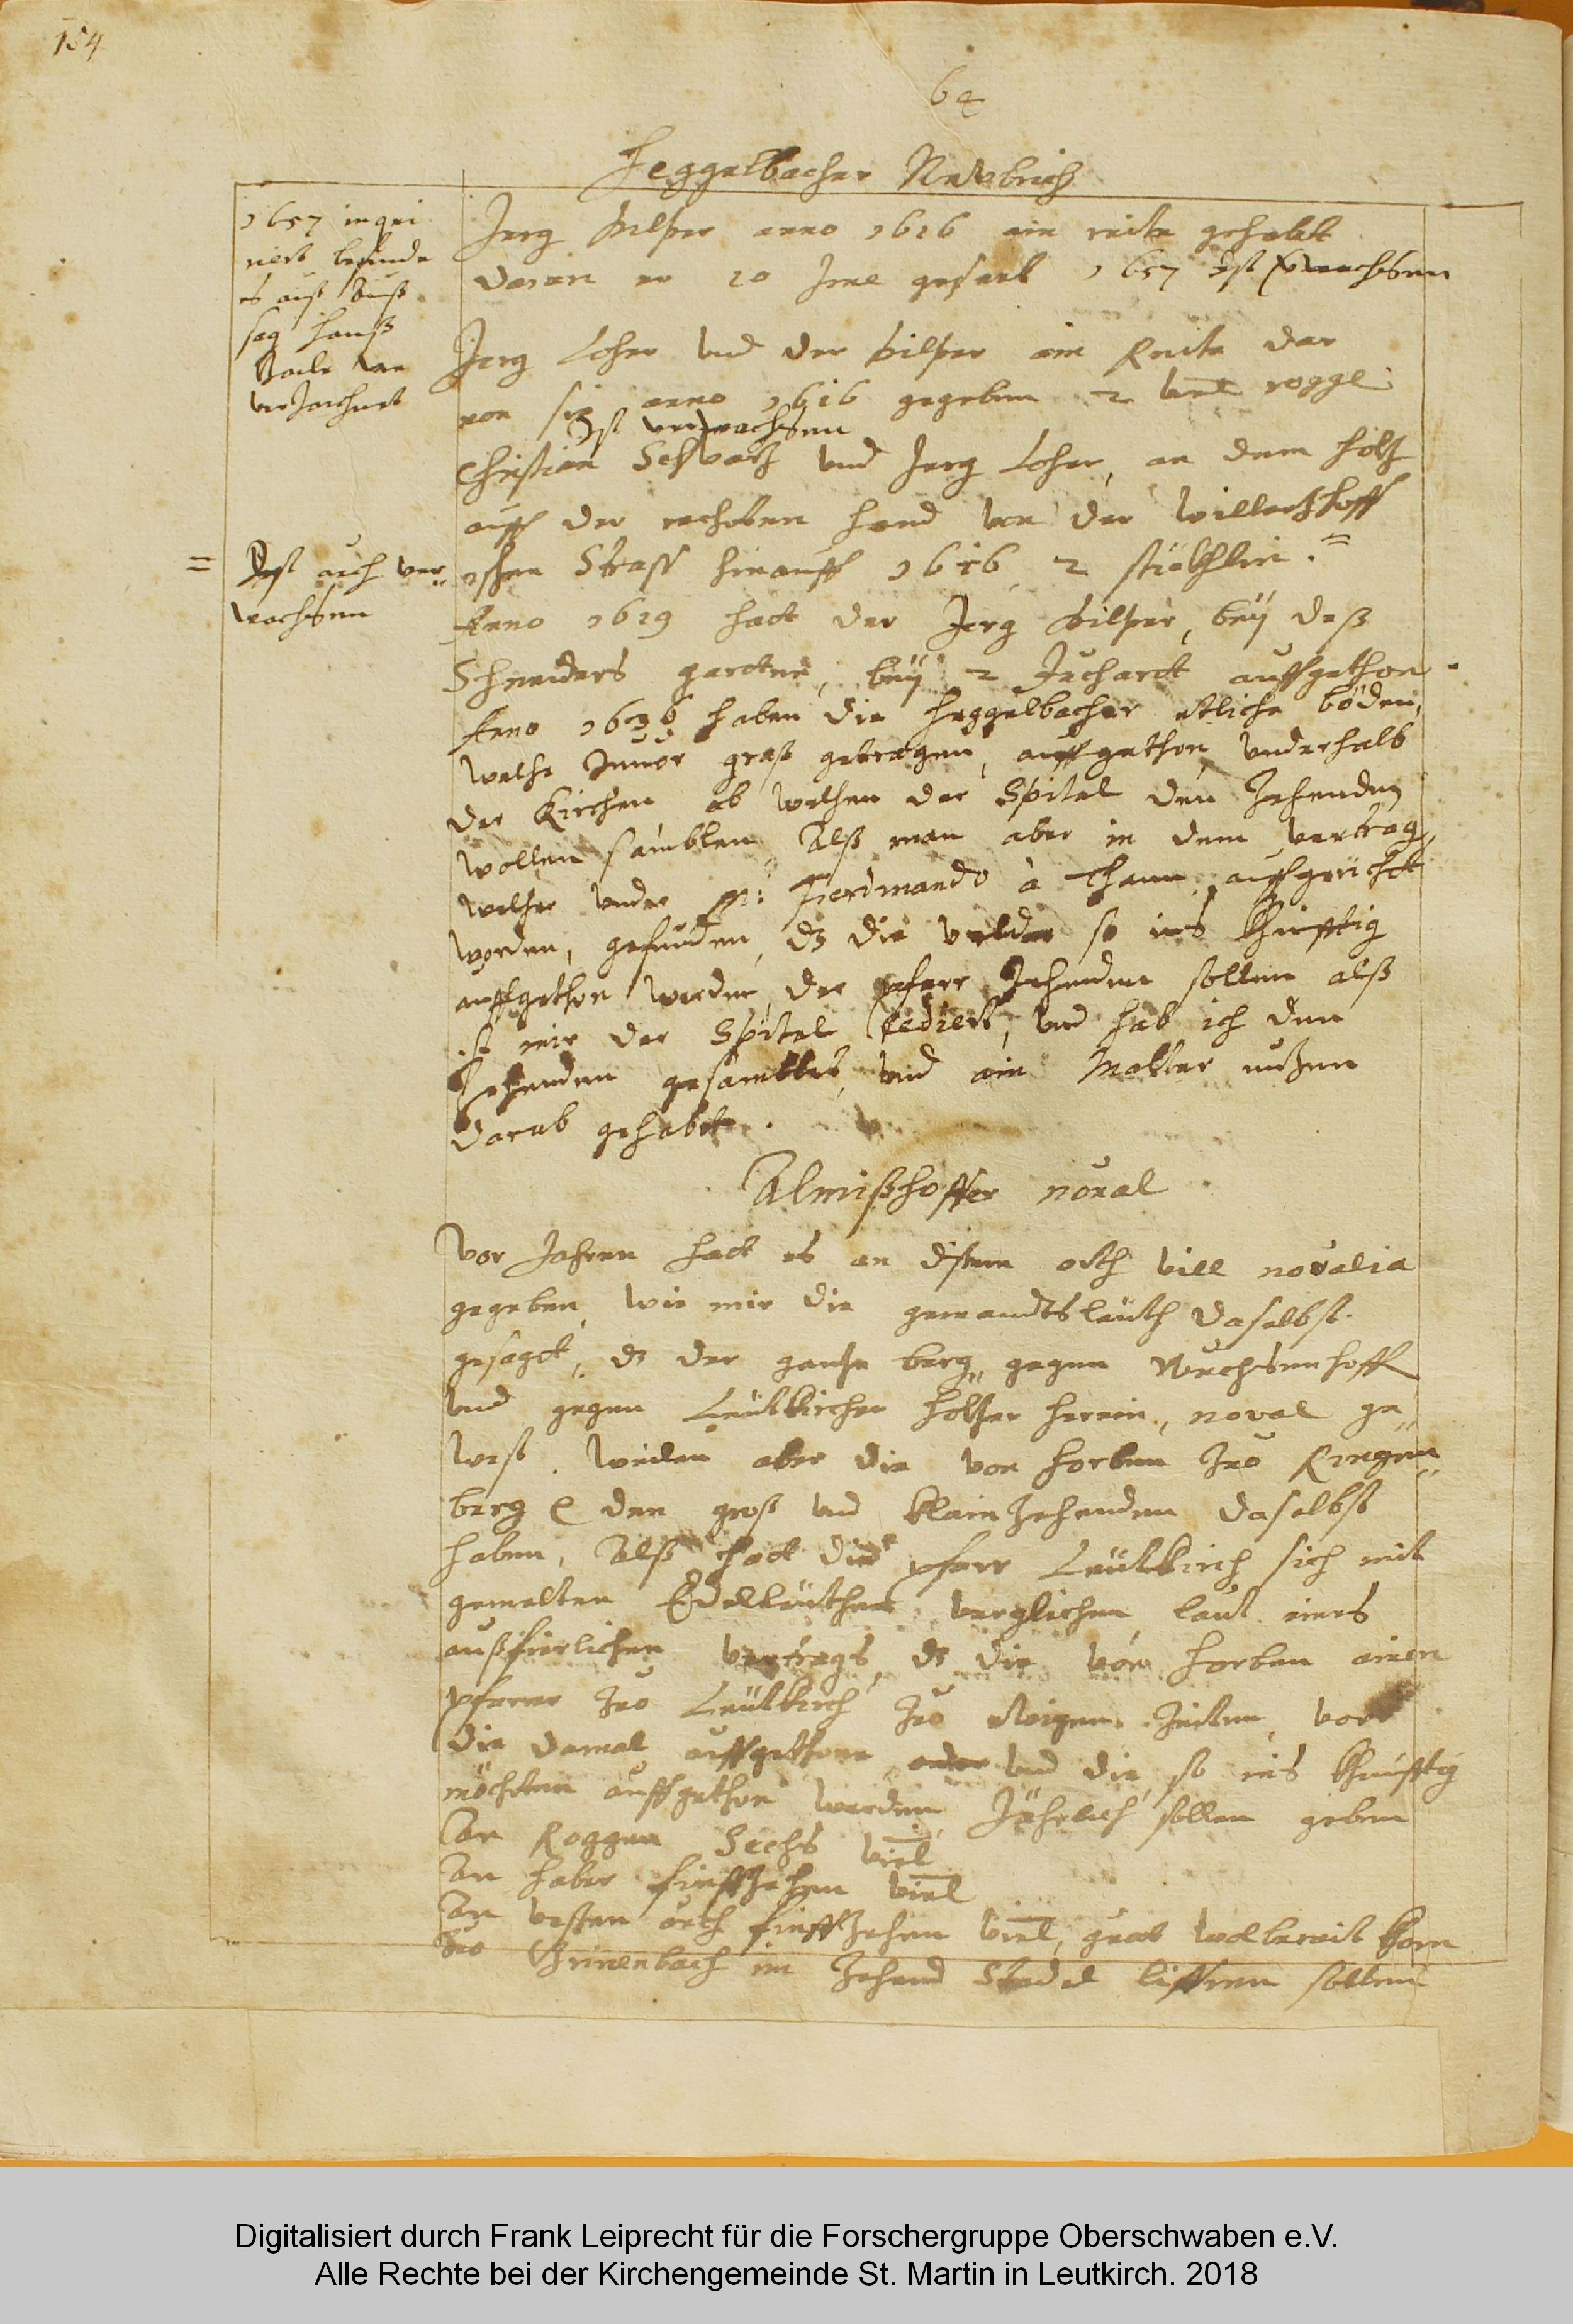 154
64
Heggelbacher Newbrich
1657 inqui
riert befunde
es auß Auß
sag Hanß
verzaichnet
Jerg Hilper anno 1616 ein reite gehabt
daran er 20 Jme gesaet 1657 Jst verwachsen
Jerg Loher vnd der Hilper ein Reite dar
von sie anno 1616 gegeben 2 viel rogge
Jst verwachsen
Christian Schwartz vnd Jerg Loher, an dem holtz
auff der rechten hand von der Willertzhoff
= Jst auch ver„
wachsen
ischen Straß hinauff 1616, 2 stücklin. =
Anno 1619 hatt der Jerg Hilper, beÿ deß
Schneiders garten, beÿ 2 Juchart auffgethon.
Anno 1636 haben die Heggelbacher etliche böden,
welche zuuor graß getragen, auffgethon vnderhalb
der Kirchen, ab welchen der Spital den Zehenden
wollen samblen, Alß man aber in dem vertrag,
welcher vnder Ferdinando à Thann auffgericht
worden, gefunden, dz die velder so ins khünfftig
auffgethon werden, der pfarr Zehenden sollen alß
ist mir der Spital cediert, vnd hab ich den
Zehenden gesamblet, vnd ein Malter
darab gehabt.
Almißhoffer noual
Vor Jahren hatt es an disem orth vill noualia
gegeben, wie mir die gemaindtsleüth daselbst
gesagt, dz der gantze berg, gegen Wuchsenhoff
vnd gegen Leütkircher holtzer herein, noval ge„
west. Weilen aber die von Horben zuo Ringen„
berg den groß vnd klein Zehenden daselbst
haben, Alß hatt die pfarr Leütkirch sich mit
gemelten Edelleüthen verglichen, laut eines
außfierlichen vertrags, dz die von Horben einen
pfarrer zuo Leütkirch zuo ewigen Zeiten, vor
die damal auffgethone vnd die so ins khünfftig
möchten auffgethon werden, Jährlich sollen geben
An Roggen Sechs viel
An haber finffzehen viel
An vesen auch finffzehen viel, guot wolbereit korn
zuo Grinenbach im Zehend Stadel liffren sollen
Digitalisiert durch Frank Leiprecht für die Forschergruppe Oberschwaben e.V.
Alle Rechte bei der Kirchengemeinde St. Martin in Leutkirch. 2018